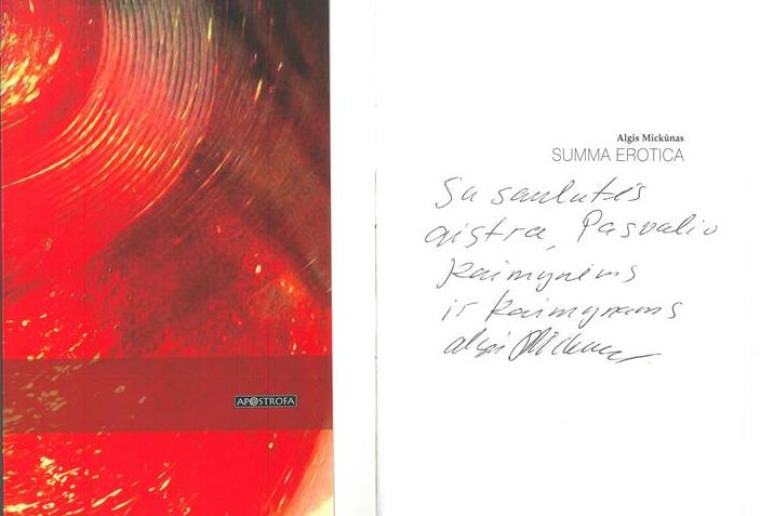 APOSTROFA
Algis Mickūnas
SUMMA EROTICA
Su saulutės
aistra, Pasvalio
kaimynėms
ir kaimynams
algis Mickunas